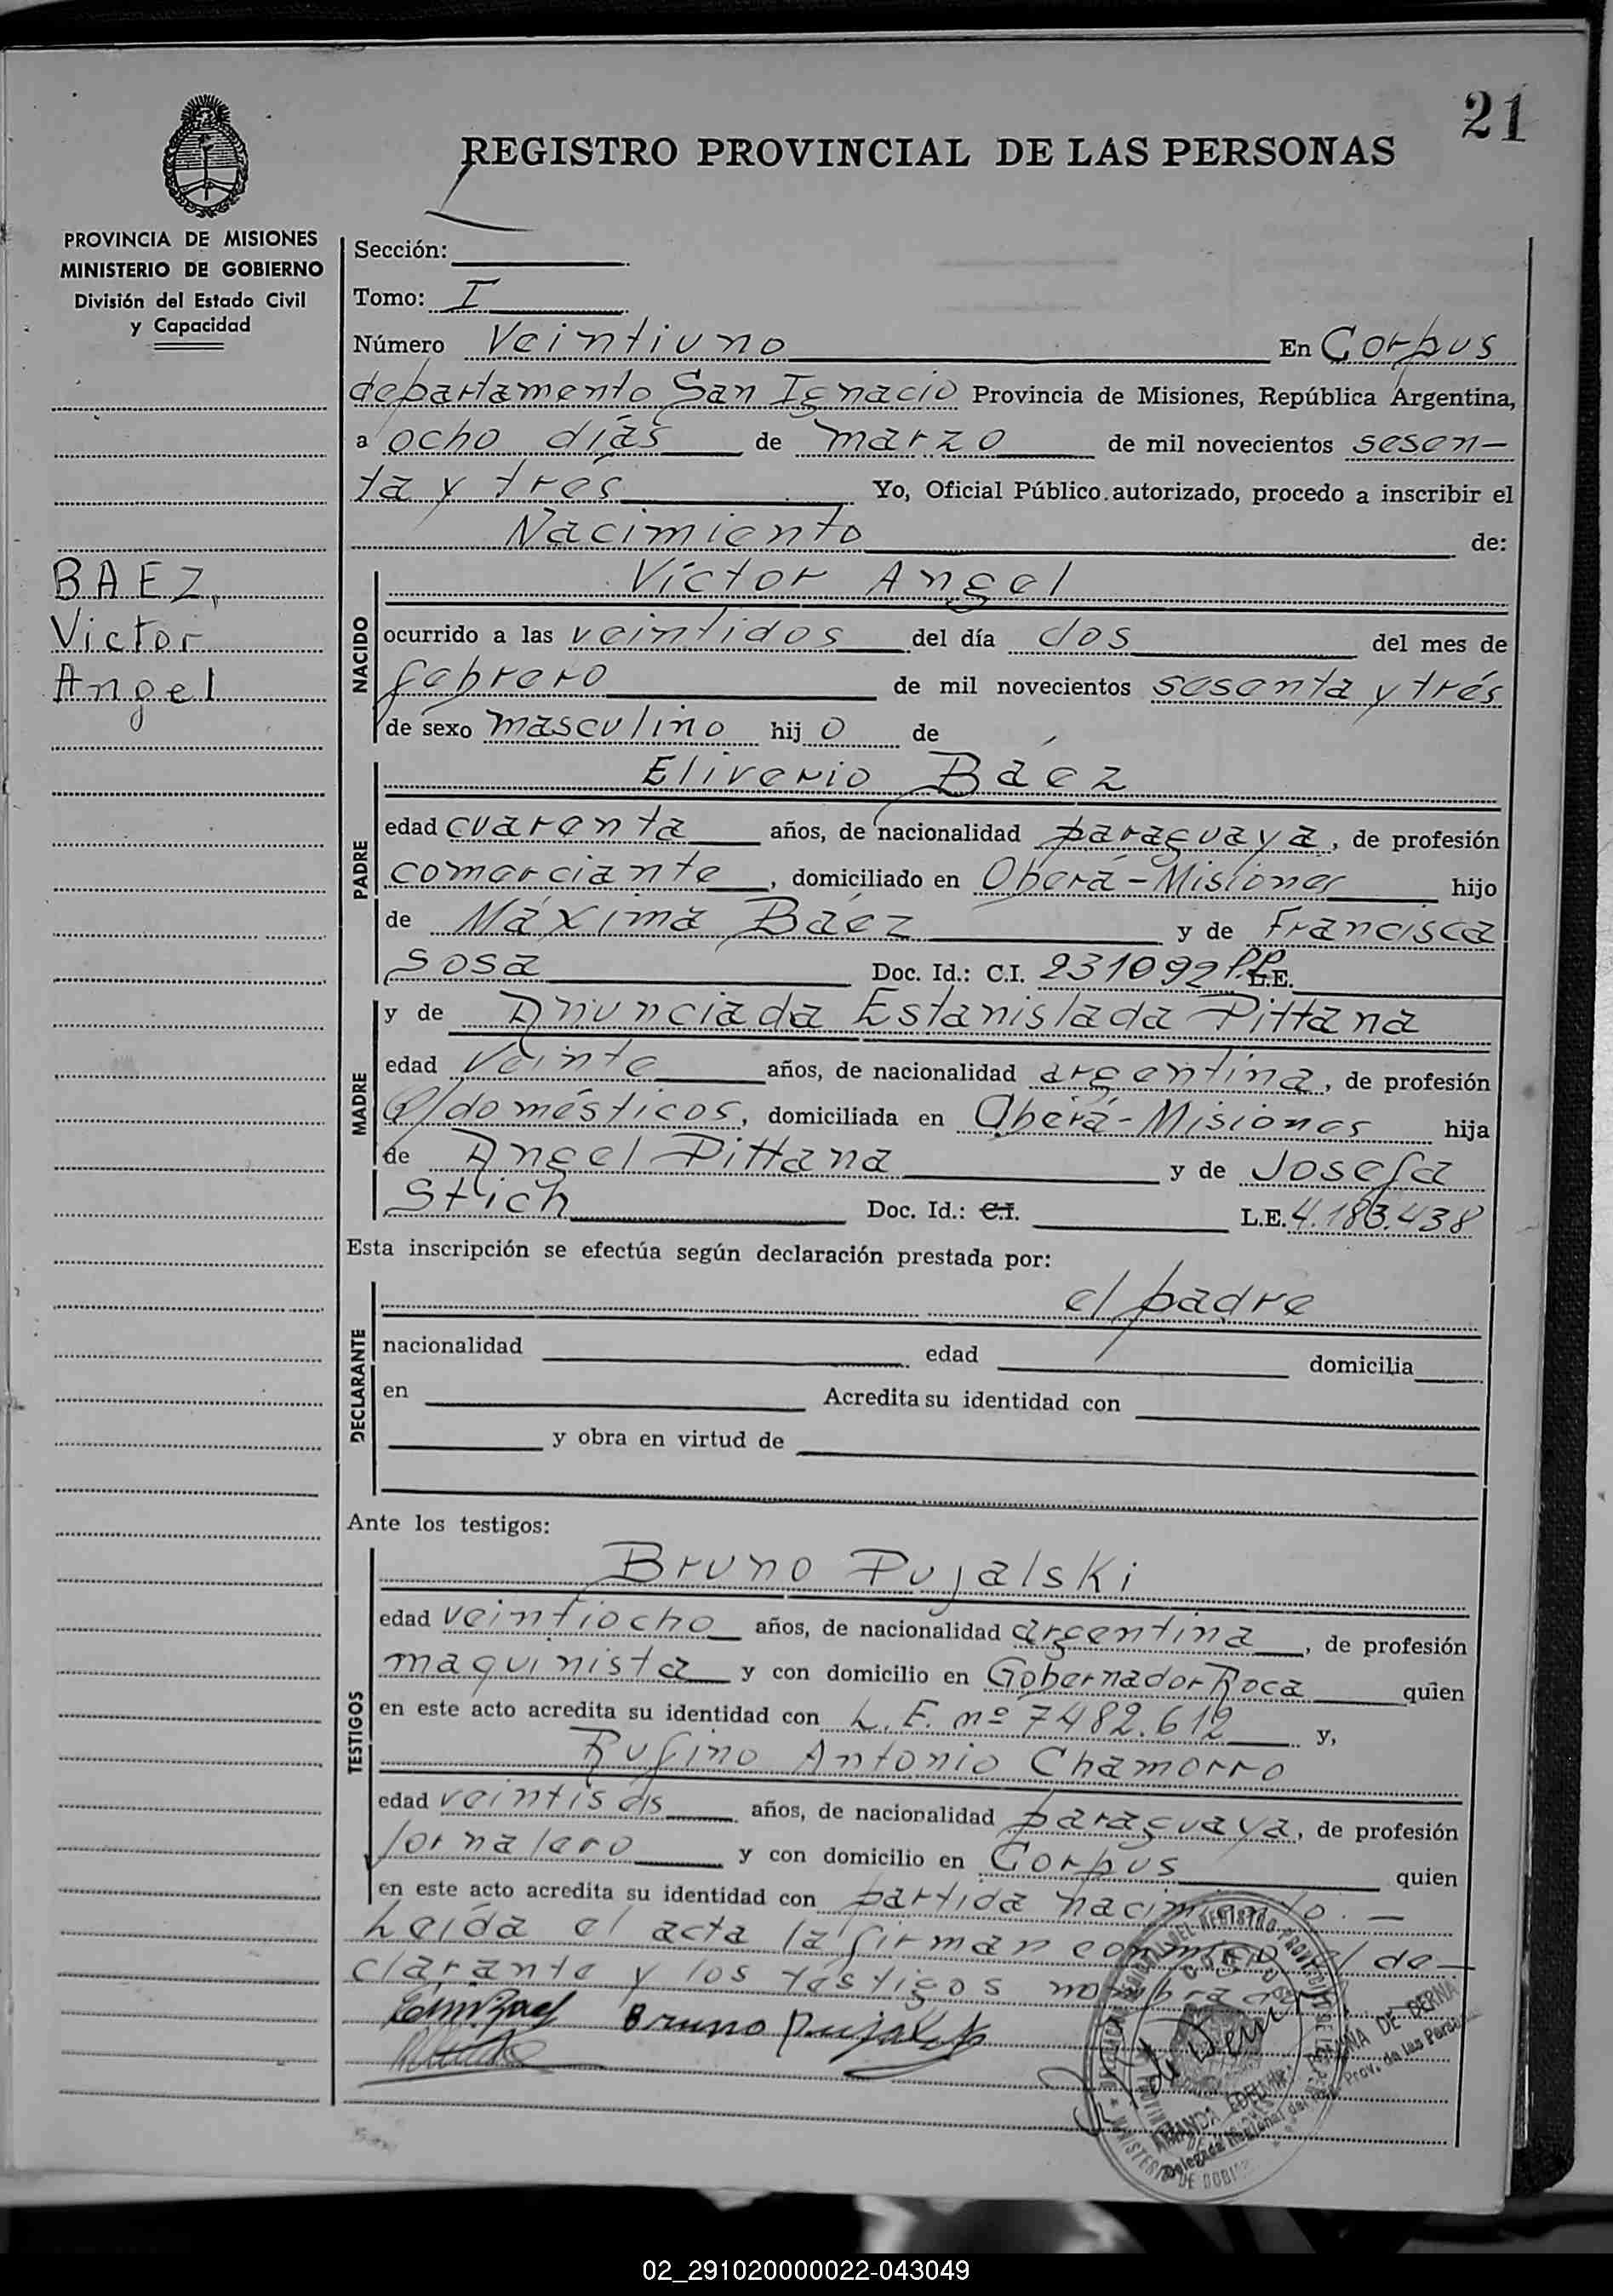 21
REGISTRO PROVINCIAL DE LAS PERSONAS
PROVINCIA DE MISIONES
MINISTERIO DE GOBIERNO
División del Estado Civil
y Capacidad
BAEZ,
Victor
Angel
Sección:
Tomo: I
Número Veintiuno En Corpus
departamento San Ignacio Provincia de Misiones, República Argentina,
a ocho días de marzo de mil novecientos sesen-
ta y tres Yo, Oficial Público autorizado, procedo a inscribir el
Nacimiento de:
NACIDO
Víctor Angel
ocurrido a las veintidos del día dos del mes de
febrero de mil novecientos sesenta y trés
de sexo masculino hijo de
PADRE
Eliverio Báez
edad cuarenta años, de nacionalidad paraguaya, de profesión
comerciante, domiciliado en Oberá-Misiones hijo
de Máxima Báez y de Francisca
Sosa Doc. Id.: C.I. 231092 P.P. L.E.
MADRE
y de Anunciada Estanislada Pittana
edad Veinte años, de nacionalidad argentina, de profesión
Q/domésticos, domiciliada en Oberá-Misiones hija
de Angel Pittana y de Josefa
Stich Doc. Id.: C.I. L.E. 4.183.438
Esta inscripción se efectúa según declaración prestada por:
DECLARANTE
el padre
nacionalidad edad domicilia
en Acredita su identidad con
y obra en virtud de
Ante los testigos:
TESTIGOS
Bruno Pujalski
edad veintiocho años, de nacionalidad argentina, de profesión
maquinista y con domicilio en Gobernador Roca quien
en este acto acredita su identidad con L.E. nº 7482.612 y,
Rufino Antonio Chamorro
edad veintiséis años, de nacionalidad paraguaya, de profesión
jornalero y con domicilio en Corpus quien
en este acto acredita su identidad con partida nacimiento.-
Leída el acta la firman conmigo el de-
clarante y los testigos nombrados.
Bruno Pujalski
DE BERNA
Delegada Regional del Reg. Prov. de las Pers
02_291020000022-043049